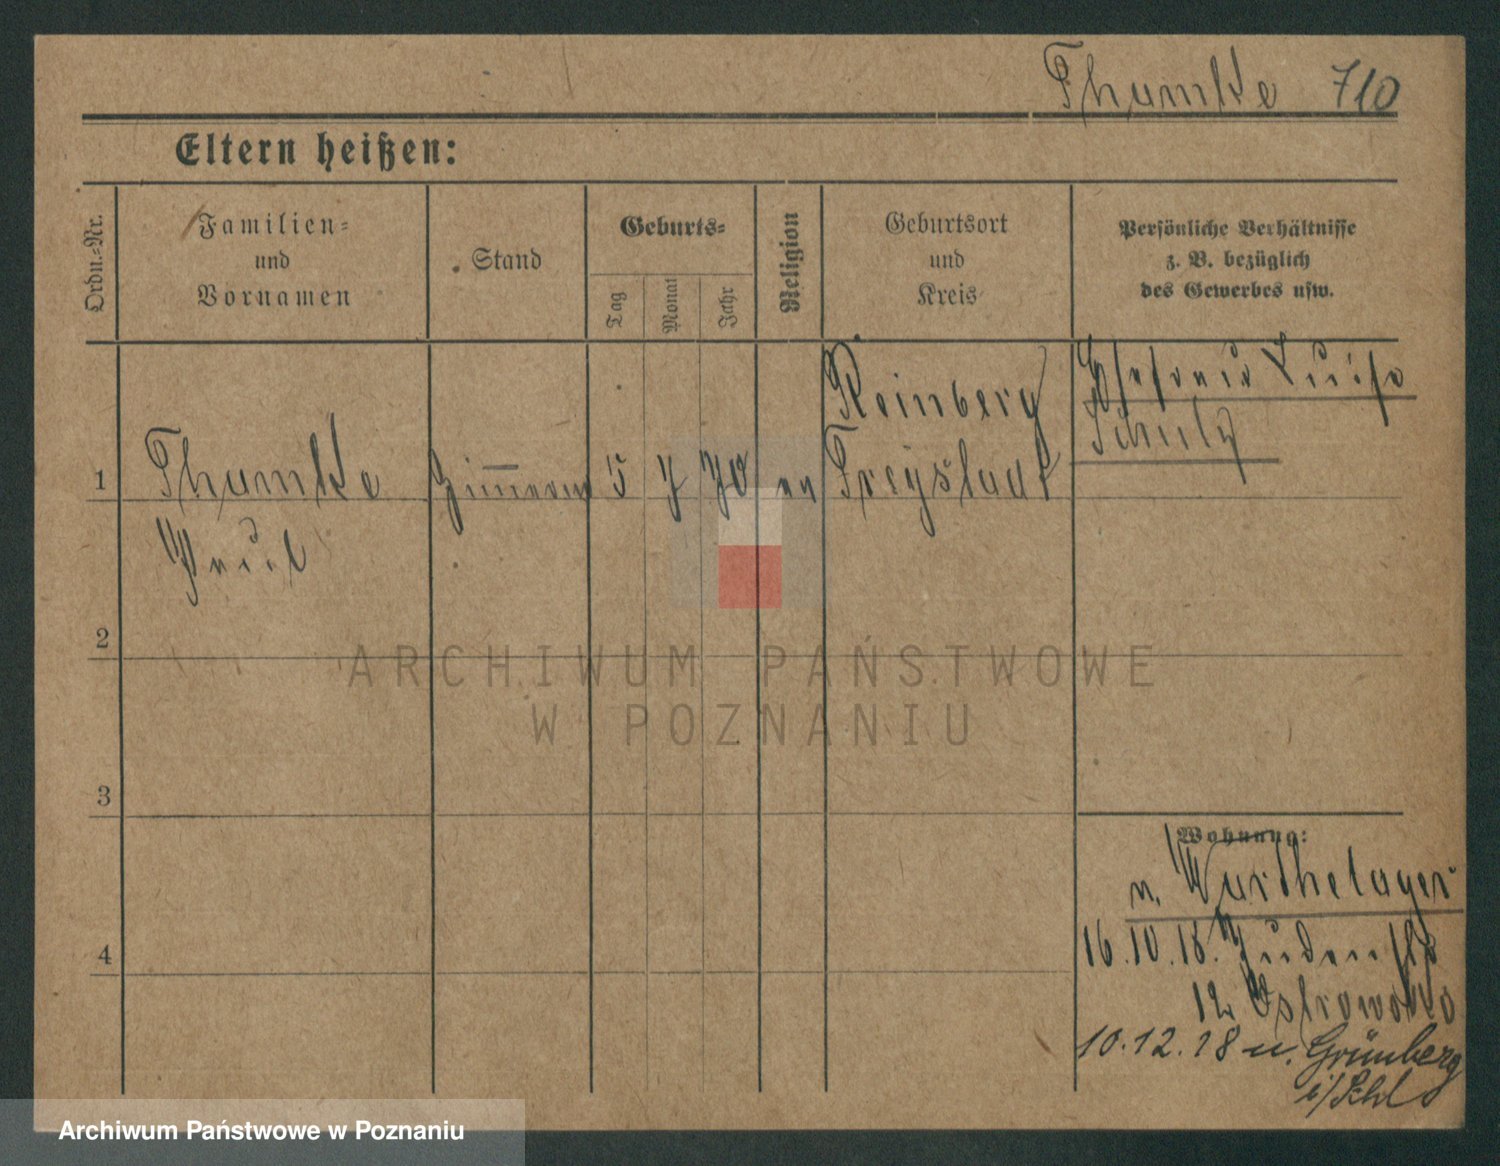 Thumke 710
Eltern heißen:
Ordn.-Nr.
Familien-
und
Vornamen
Stand
Geburts-
Tag
Monat
Jahr
Religion
Geburtsort
und
Kreis
Persönliche Verhältnisse
z. B. bezüglich
des Gewerbes usw.
1
Thumke
Paul
5
7
70
ev
Reinberg
Freystadt
Ehefrau Luise
Schulz
2
3
4
Wohnung:
n. Warthelager
16.10.18. Judenstr
12 Ostrowo
10.12.18 n. Grünberg
i/Schl
ARCHIWUM PAŃSTWOWE
W POZNANIU
Archiwum Państwowe w Poznaniu